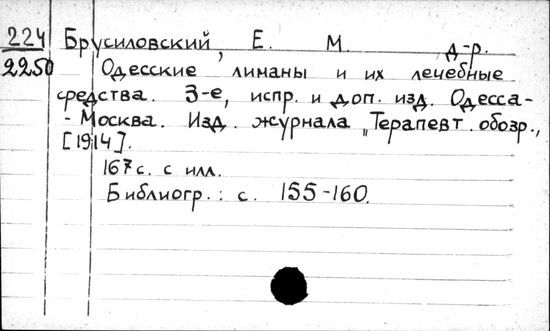 224 Брусиловский, Е. М. д-р.
2250 Одесские лиманы и их лечебные
средства. 3-е, испр. и доп. изд. Одесса-
- Москва. Изд. журнала „Терапевт. обозр.,
[1914].
167 с. с илл.
Библиогр.: с. 155-160.